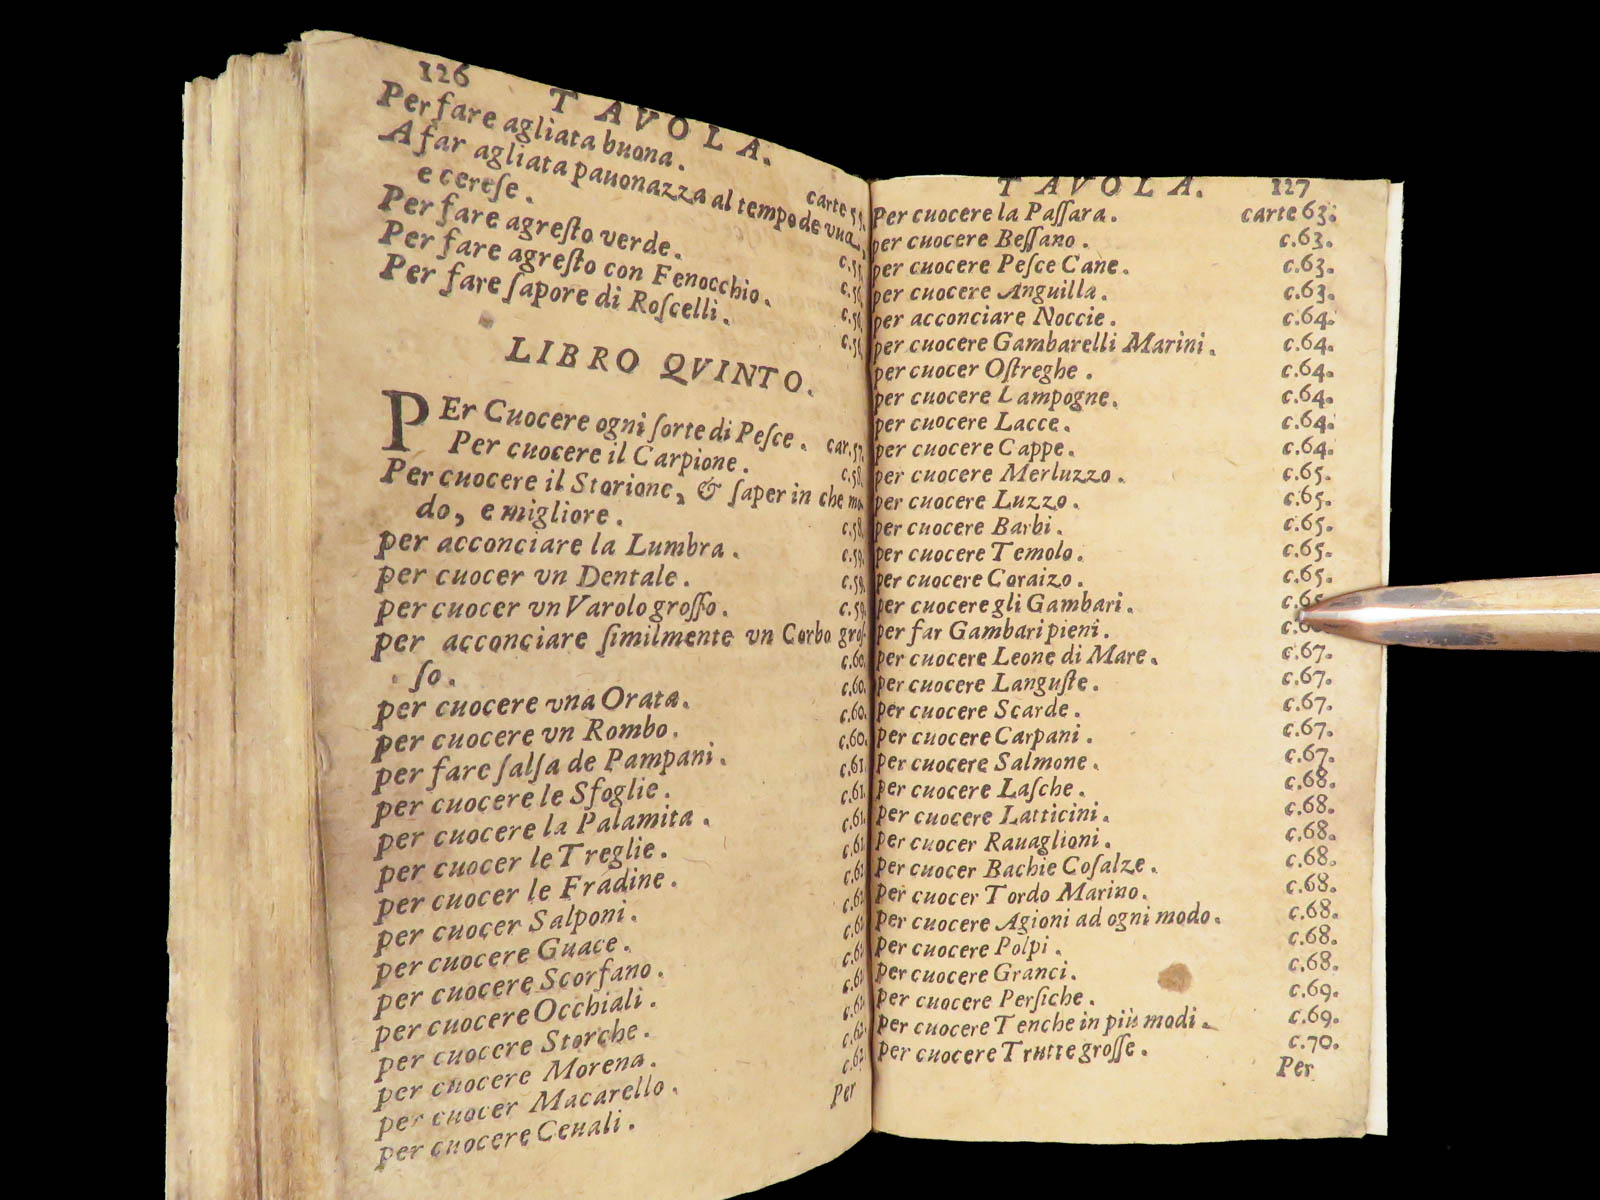 126
TAVOLA.
Per fare agliata buona.
carte 55.
A far agliata pauonazza al tempo de vua,
e cerese.
c.55.
Per fare agresto verde.
c.56.
Per fare agresto con Fenocchio.
c.56.
Per fare sapore di Roscelli.
c.56.
LIBRO QVINTO.
PEr Cuocere ogni sorte di Pesce. car.57.
Per cuocere il Carpione.
c.58.
Per cuocere il Storione, & saper in che mo-
do, e migliore.
c.58.
per acconciare la Lumbra.
c.59.
per cuocer vn Dentale.
c.59.
per cuocer vn Varolo grosso.
c.59.
per acconciare similmente vn Corbo gros-
so.
c.60.
per cuocere vna Orata.
c.60.
per cuocere vn Rombo.
c.60.
per fare salsa de Pampani.
c.60.
per cuocere le Sfoglie.
c.61.
per cuocere la Palamita.
c.61.
per cuocer le Treglie.
c.61.
per cuocer le Fradine.
per cuocer Salponi.
per cuocere Guace.
per cuocere Scorfano.
per cuocere Occhiali.
per cuocere Storche.
per cuocere Morena.
per cuocer Macarello.
per cuocere Ceuali.
Per
TAVOLA. 127
Per cuocere la Passara. carte 63.
per cuocere Bessano. c.63.
per cuocere Pesce Cane. c.63.
per cuocere Anguilla. c.63.
per acconciare Noccie. c.64.
per cuocere Gambarelli Marini. c.64.
per cuocer Ostreghe. c.64.
per cuocere Lampogne. c.64.
per cuocere Lacce. c.64.
per cuocere Cappe. c.64.
per cuocere Merluzzo. c.65.
per cuocere Luzzo. c.65.
per cuocere Barbi. c.65.
per cuocere Temolo. c.65.
per cuocere Coraizo. c.65.
per cuocere gli Gambari.
per far Gambari pieni.
per cuocere Leone di Mare. c.67.
per cuocere Languste. c.67.
per cuocere Scarde. c.67.
per cuocere Carpani. c.67.
per cuocere Salmone. c.67.
per cuocere Lasche. c.68.
per cuocere Latticini. c.68.
per cuocer Rauaglioni. c.68.
per cuocer Bachie Cosalze. c.68.
per cuocer Tordo Marino. c.68.
per cuocere Agioni ad ogni modo. c.68.
per cuocere Polpi. c.68.
per cuocere Granci. c.68.
per cuocere Persiche. c.69.
per cuocere Tenche in più modi. c.69.
per cuocere Trutte grosse. c.70.
Per